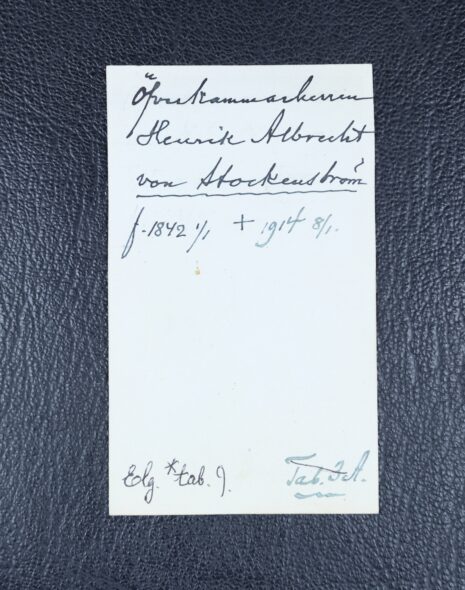 Öfverkammarherren
Henrik Albrecht
von Stockenström
f. 1842 1/1 + 1914 8/1.
Elg. *tab. 9. Tab. 3A.